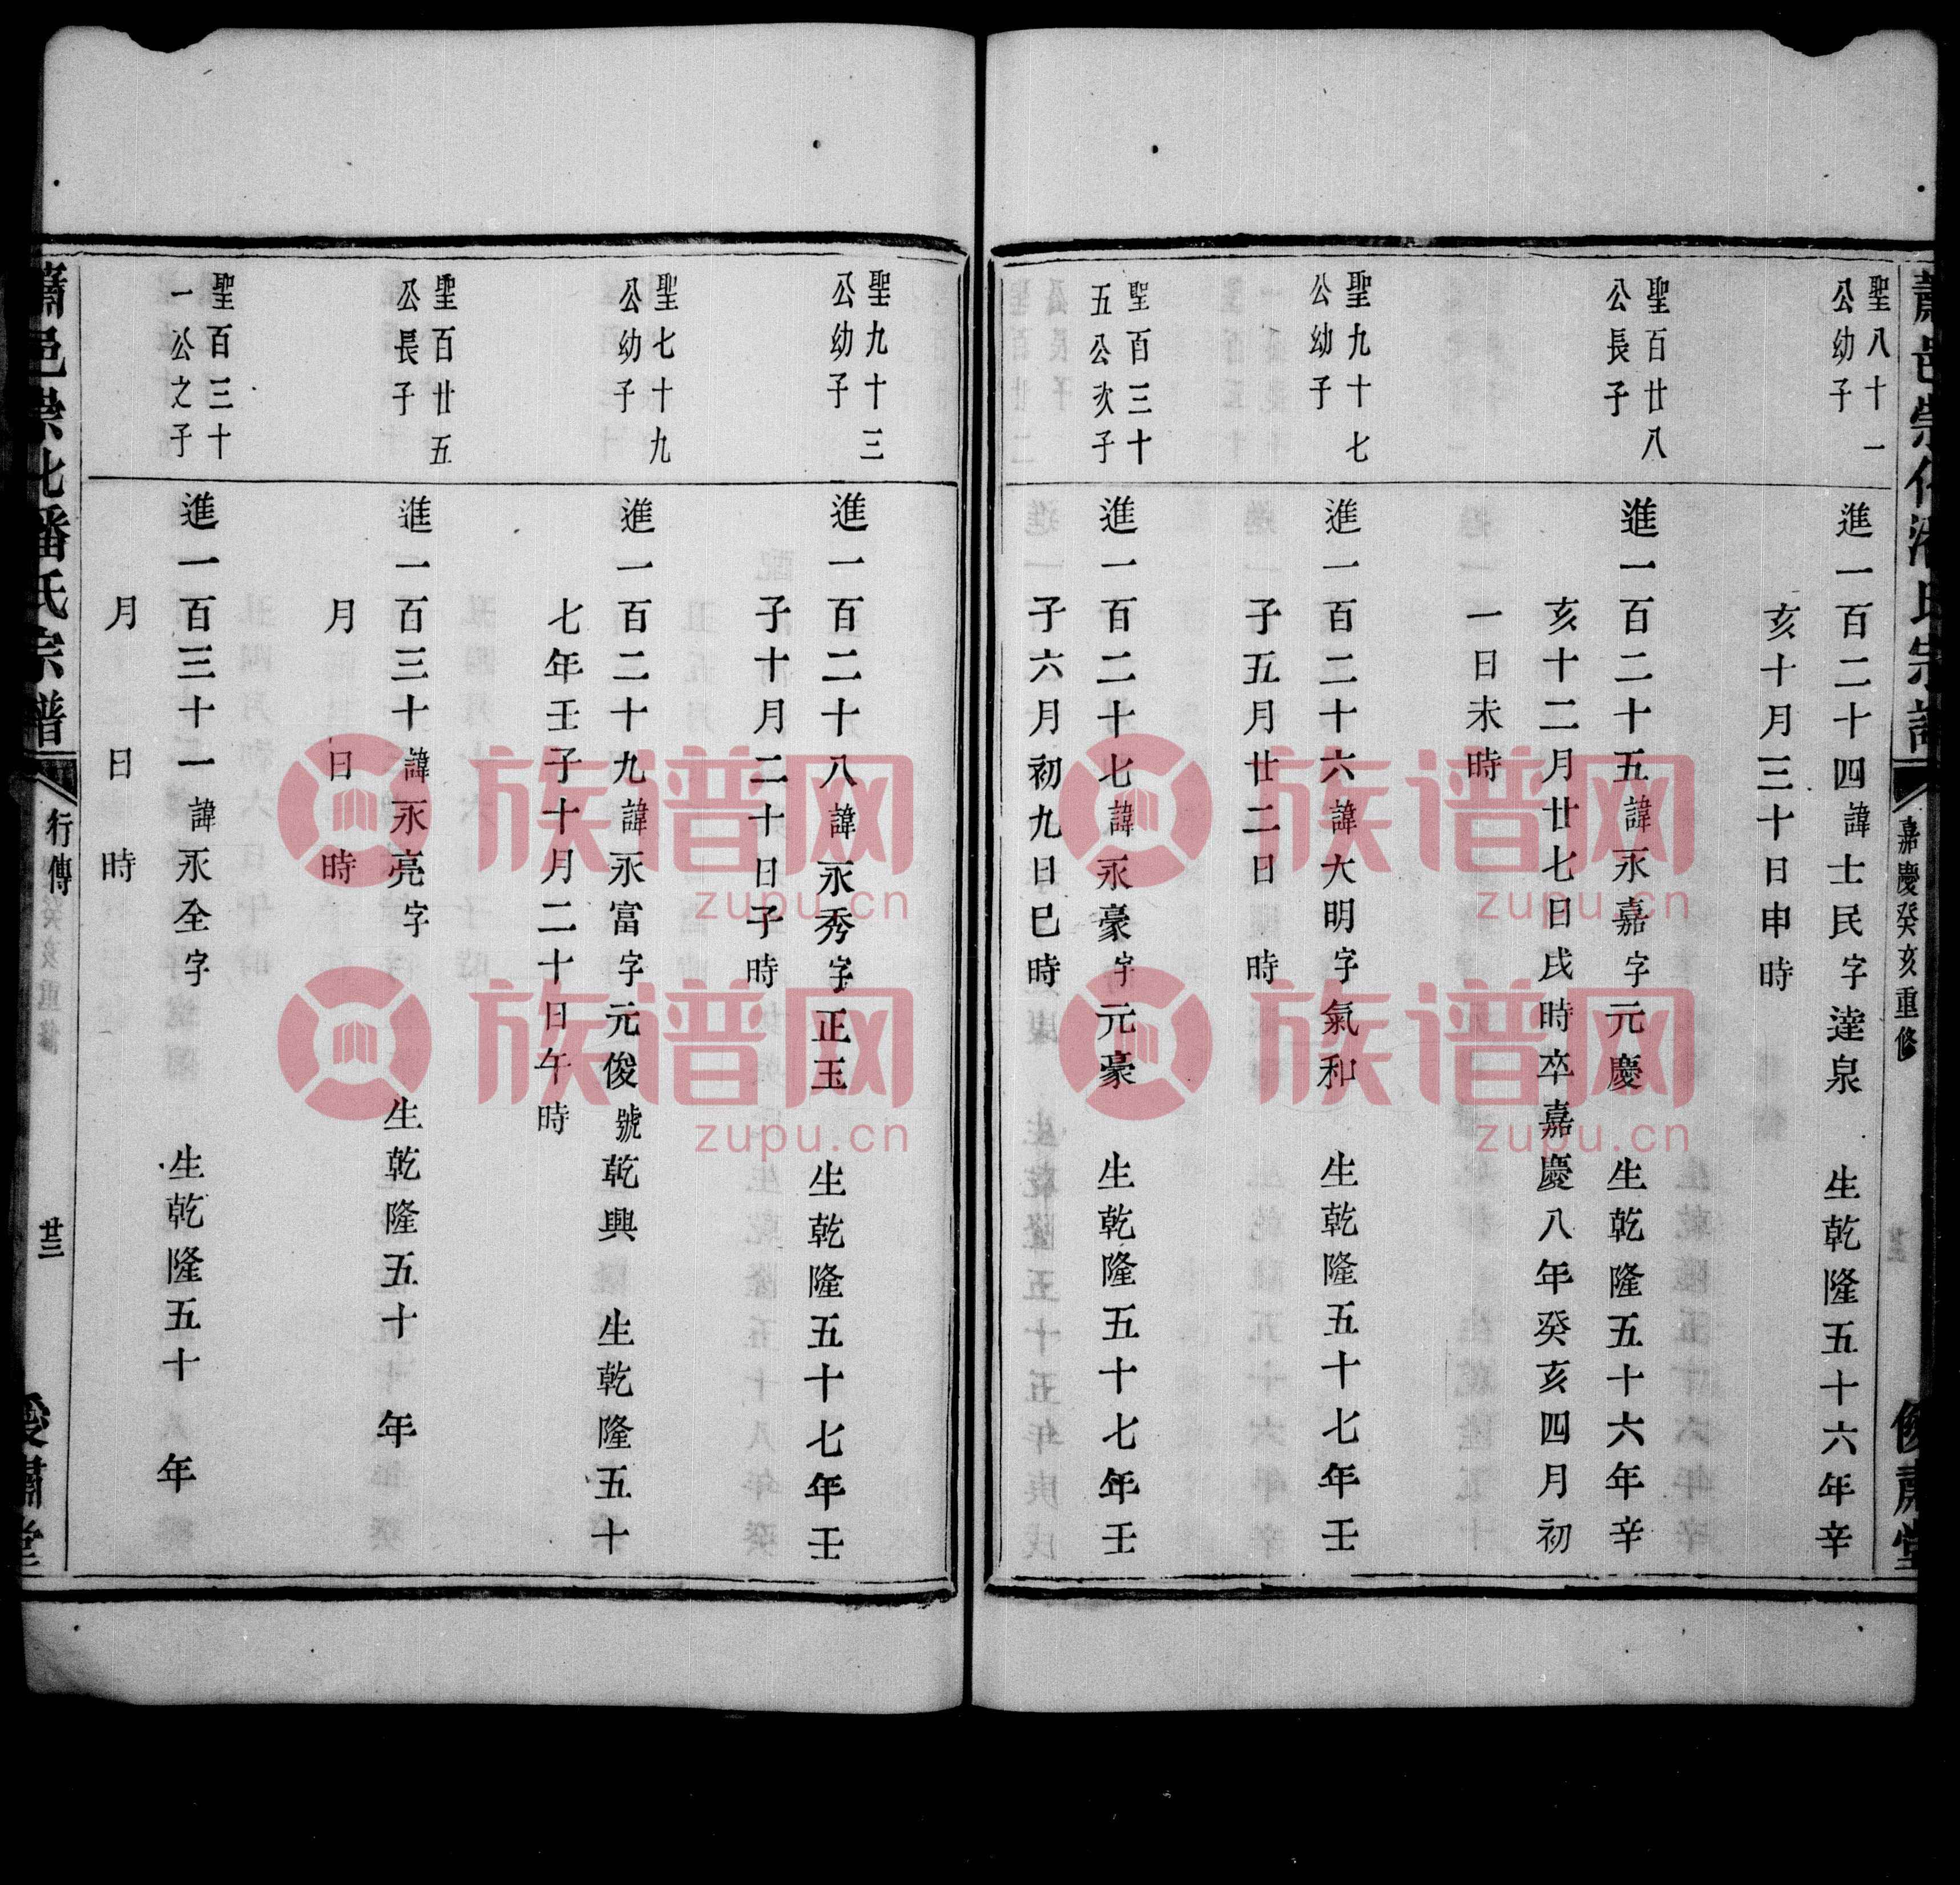 蕭邑崇化潘氏宗譜
嘉慶癸亥重修
俊肅堂
聖八十一
公幼子
進一百二十四諱士民字達泉 生乾隆五十六年辛
亥十月三十日申時
聖百廿八
公長子
進一百二十五諱永嘉字元慶 生乾隆五十六年辛
亥十二月廿七日戌時卒嘉慶八年癸亥四月初
一日未時
聖九十七
公幼子
進一百二十六諱大明字氣和 生乾隆五十七年壬
子五月廿二日 時
聖百三十
五公次子
進一百二十七諱永豪字元豪 生乾隆五十七年壬
子六月初九日巳時
聖九十三
公幼子
進一百二十八諱永秀字正玉 生乾隆五十七年壬
子十月二十日子時
聖七十九
公幼子
進一百二十九諱永富字元俊號乾興 生乾隆五十
七年壬子十月二十日午時
聖百廿五
公長子
進一百三十諱永亮字 生乾隆五十 年
月 日 時
聖百三十
一公之子
進一百三十一諱永全字 生乾隆五十 年
月 日 時
蕭邑崇化潘氏宗譜
行傳
廿三
俊肅堂
族谱网
zupu.cn
族谱网
zupu.cn
族谱网
zupu.cn
族谱网
zupu.cn